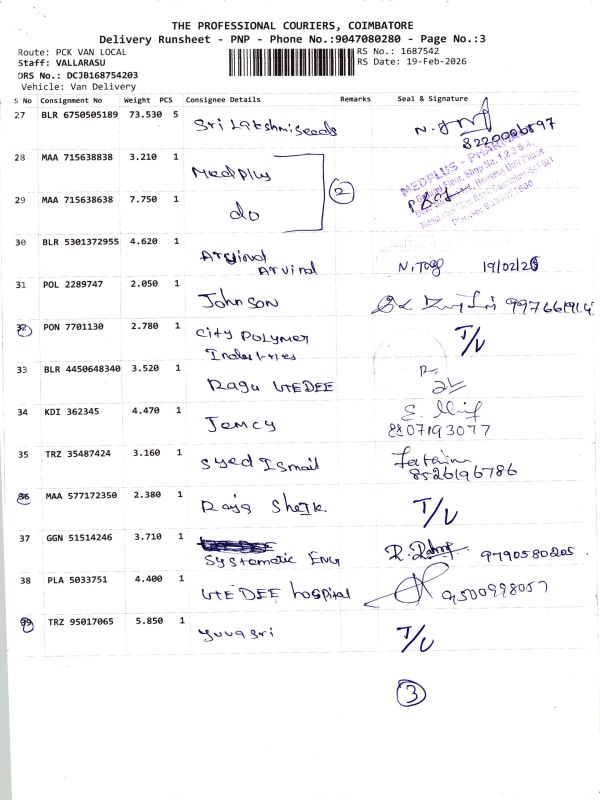 THE PROFESSIONAL COURIERS, COIMBATORE
Delivery Runsheet - PNP - Phone No.:9047080280 - Page No.:3
Route: PCK VAN LOCAL
RS No.: 1687542
Staff: VALLARASU
RS Date: 19-Feb-2026
DRS No.: DCJB168754203
Vehicle: Van Delivery
S No Consignment No Weight PCS Consignee Details Remarks Seal & Signature
27 BLR 6750505189 73.530 5 Sri Lakshmi Seeds
28 MAA 715638838 3.210 1 Medplus
2
29 MAA 715638638 7.750 1 do
30 BLR 5301372955 4.620 1 Arvind
Arvind 19/02/26
31 POL 2289747 2.050 1 Johnson 9976661914
32 PON 7701130 2.780 1 City Polymer T/V
Industries
33 BLR 4450648340 3.520 1 Ragu VTEDEE
34 KDI 362345 4.470 1 Jemcy
8807193077
35 TRZ 35487424 3.160 1 Syed Ismail
8526196786
36 MAA 577172350 2.380 1 Raja Sheik T/V
37 GGN 51514246 3.710 1
Systematic Eng 9790580205
38 PLA 5033751 4.400 1 VTEDEE hospital 9500998057
39 TRZ 95017065 5.850 1 yuvasri T/V
3